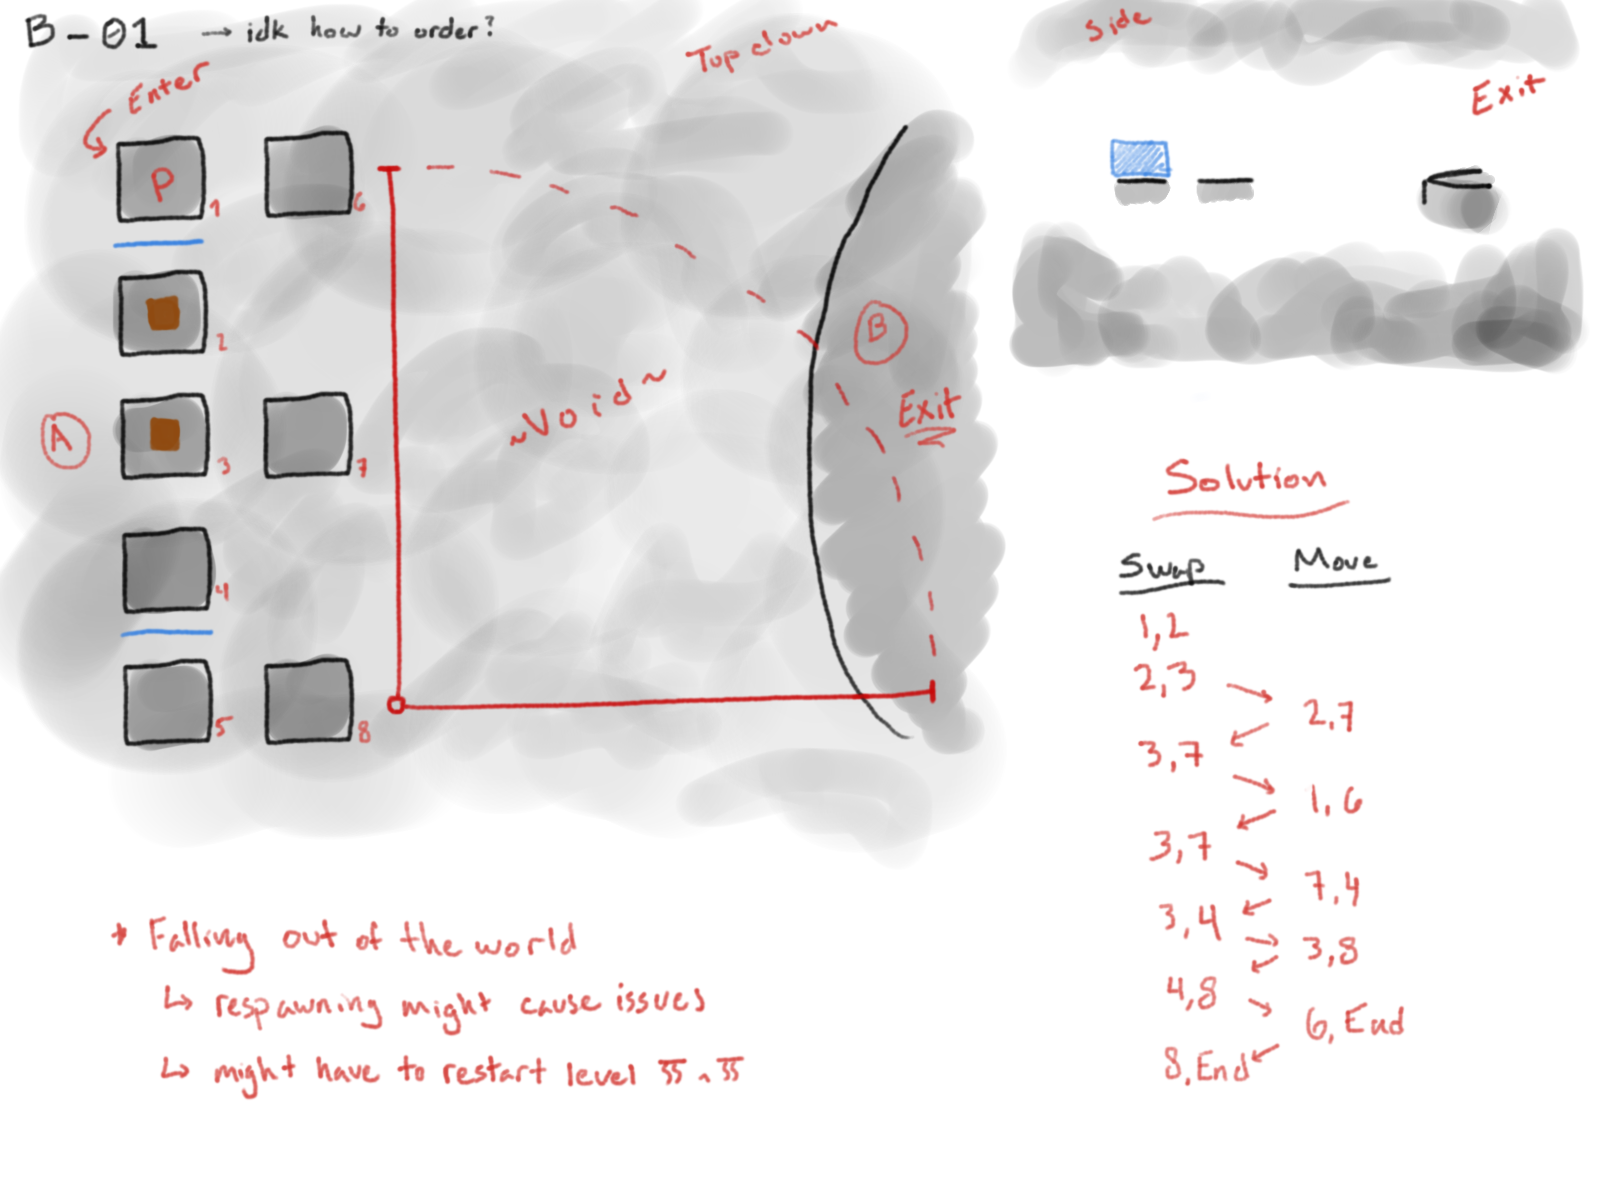 B-01 → idk how to order?
Enter
Top down
P
1
6
2
A
3
7
4
5
8
~Void~
B
Exit
Side
Exit
Solution
Swap Move
1,2
2,3
2,7
3,7
1,6
3,7
7,4
3,4
3,8
4,8
6,End
8,End
* Falling out of the world
↳ respawning might cause issues
↳ might have to restart level ㅠ.ㅠ